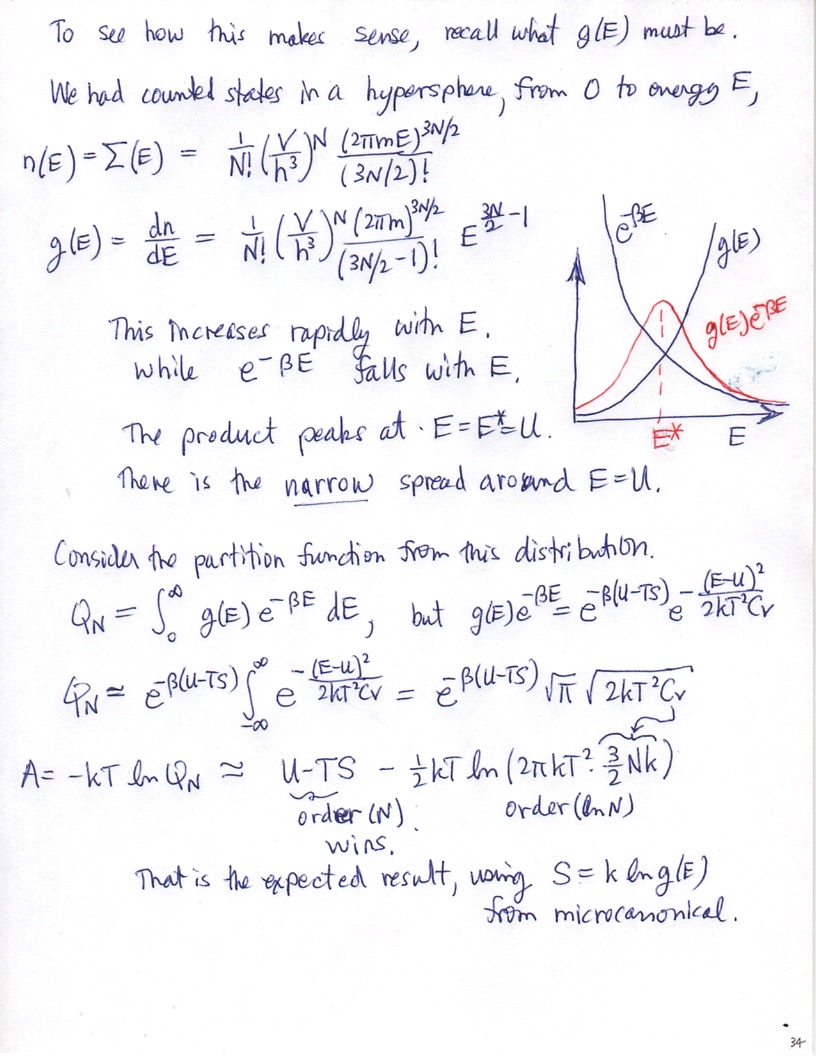 To see how this makes sense, recall what g(E) must be.
We had counted states in a hypersphere, from 0 to energy E,
n(E) = Σ(E) = 1/N! (V/h³)^N (2πmE)^3N/2 / (3N/2)!
g(E) = dn/dE = 1/N! (V/h³)^N (2πm)^3N/2 / (3N/2 - 1)! E^(3N/2 - 1)
e^-βE
g(E)
g(E)e^-βE
E*
E
This increases rapidly with E.
while e^-βE falls with E.
The product peaks at · E = E* = U.
There is the narrow spread around E = U.
Consider the partition function from this distribution.
Q_N = ∫_0^∞ g(E) e^-βE dE, but g(E)e^-βE = e^-β(U-TS) e^-(E-U)²/2kT²Cv
Q_N ≃ e^-β(U-TS) ∫_-∞^∞ e^-(E-U)²/2kT²Cv = e^-β(U-TS) √π √2kT²Cv
A = -kT ln Q_N ≈ U-TS - ½kT ln (2πkT² · 3/2 Nk)
order (N) order (ln N)
wins.
That is the expected result, using S = k ln g(E)
from microcanonical.
34